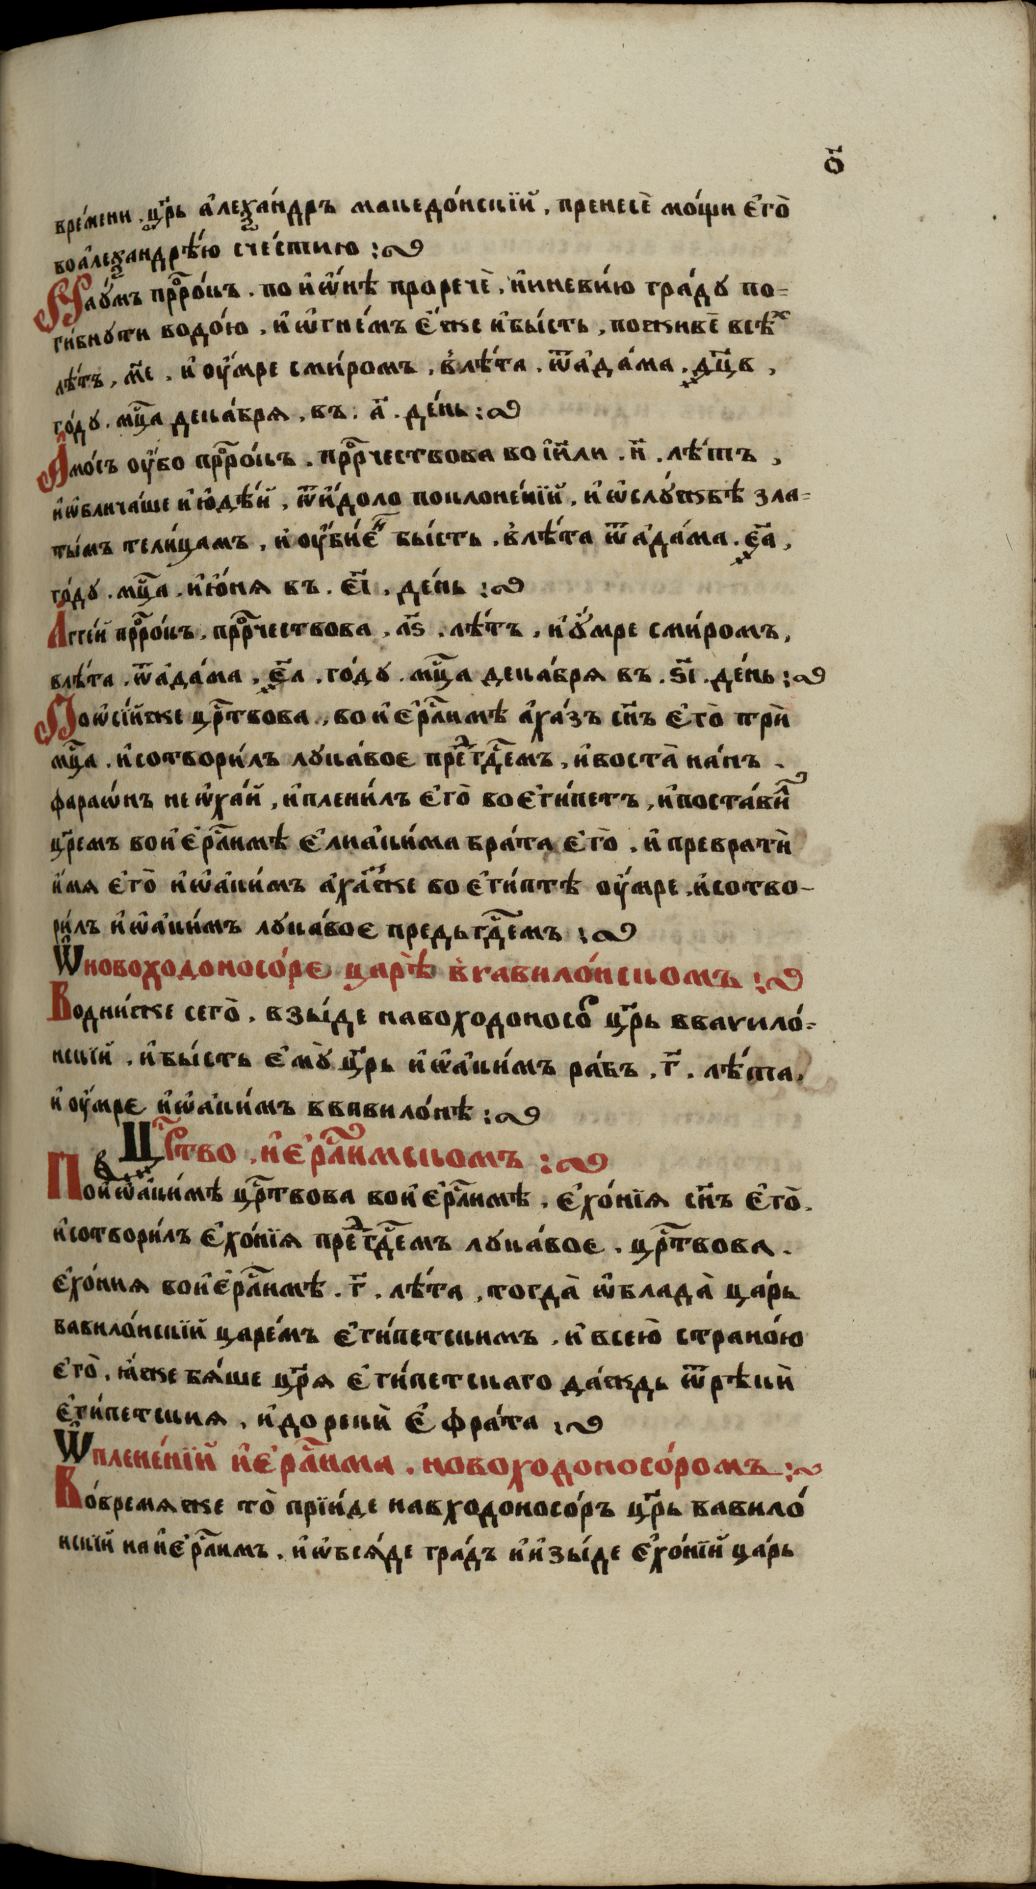 о҃
вре́мени, цр҃ь а҆леѯа́ндръ македо́нскїй, пренесѐ мо́щи є҆го̀
во а҆леѯандрѣ́ю с че́стию :
Нау́мъ прⷪ҇ро́къ. по и҆ѡ҆́нѣ проречѐ, ниневи́ю гра́ду по=
ги́бнути водо́ю, и҆ ѡ҆гне́мъ є҆́же и҆ бы́сть, поживѐ всѣ́хъ
лѣ́тъ, м҃е, и҆ оу҆́мре с ми́ромъ, в лѣ́та, ѿ а҆да́ма, ҂дц҃в,
го́ду. мц҃а дека́бря, въ. а҃. де́нь :
А҆мо́съ оу҆́бо прⷪ҇ро́къ. прⷪ҇рчествова во і҆и҃ли. н҃. лѣ́тъ,
и҆ ѡ҆блича́ше и҆ю҆дѣ́й, ѿ и҆́доло поклоне́нїй, и҆ ѡ҆ слу́жбѣ зла=
ты́мъ тели́цамъ, и҆ оу҆бие́нъ бы́сть. в лѣ́та ѿ а҆да́ма. ҂є҃а,
го́ду. мц҃а. и҆ю҆́ня въ. є҃і, де́нь :
Агге́й прⷪ҇ро́къ, прⷪ҇рчествова, л҃ѕ. лѣ́тъ, и҆ оу҆́мре с ми́ромъ,
в лѣ́та. ѿ а҆да́ма, ҂є҃л, го́ду. мц҃а дека́бря въ. ѕ҃і. де́нь :
По ѡ҆сі́и же црⷭ҇твова, во и҆є҆рⷭ҇ли́мѣ а҆ха́зъ сн҃ъ є҆го̀ трѝ
мц҃а, и҆ сотвори́лъ лука́вое пред̾ гдⷭ҇емъ, и҆ воста̀ на нь.
фараѡ́нъ неѡ҆ха́й, и҆ плени́лъ є҆го̀ во є҆ги́петъ, и҆ поста́вилъ
цр҃емъ во и҆є҆рⷭ҇ли́мѣ є҆лиаки́ма бра́та є҆го̀. и҆ превратѝ
и҆́мя є҆го̀ и҆ѡ҆аки́мъ а҆ха́з же во є҆ги́птѣ оу҆́мре, и҆ сотво-
ри́лъ и҆ѡ҆аки́мъ лука́вое предь гдⷭ҇емъ :
Ѡ҆ новоходоносо́ре царѣ̀ в вавило́нском :
Во дни́ же сего̀. взы́де навоходоносо́р цр҃ь в вавило́=
нскїй. и҆ бы́сть є҆му̀ цр҃ь и҆ѡ҆аки́мъ ра́бъ. г҃. лѣ́та.
и҆ оу҆́мре и҆ѡ҆аки́мъ в вавило́нѣ :
Црⷭ҇тво, и҆є҆рⷭ҇ли́мском :
По и҆ѡ҆аки́мѣ црⷭ҇твова во и҆є҆рⷭ҇ли́мѣ, є҆хо́нїя сн҃ъ є҆го̀.
и҆ сотвори́лъ є҆хо́нїя пред̾ гдⷭ҇емъ лука́вое. црⷭ҇твова.
є҆хо́ния во и҆є҆рⷭ҇ли́мѣ. г҃. лѣ́та, тогда̀ ѡ҆блада̀ ца́рь
вавило́нскїй царе́мъ є҆ги́петскимъ, и҆ всею̀ страно́ю
є҆го̀, ꙗ҆́же бя́ше цр҃я є҆ги́петскаго да́ждь ѿ рѣкѝ
є҆ги́петския, и҆ до рекѝ є҆фра́та :
Ѡ҆ плене́нїй и҆є҆рⷭ҇ли́ма. новоходоносо́ромъ :
Во́время же то̀ прїи́де навходоносо́ръ цр҃ь вавило́
нскїй на и҆є҆рⷭ҇ли́мъ. и҆ ѡ҆бся́де гра́дъ и҆ и҆зы́де є҆хо́нїй ца́рь